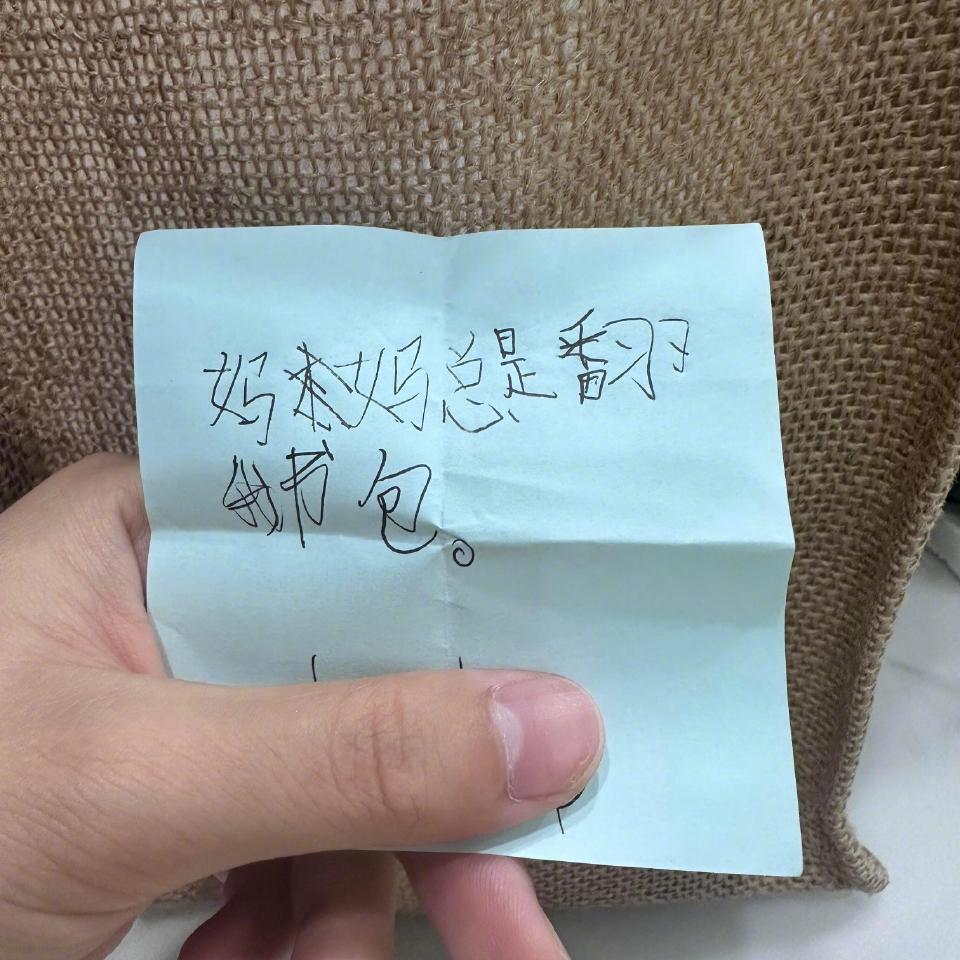 妈妈总是翻
我书包。